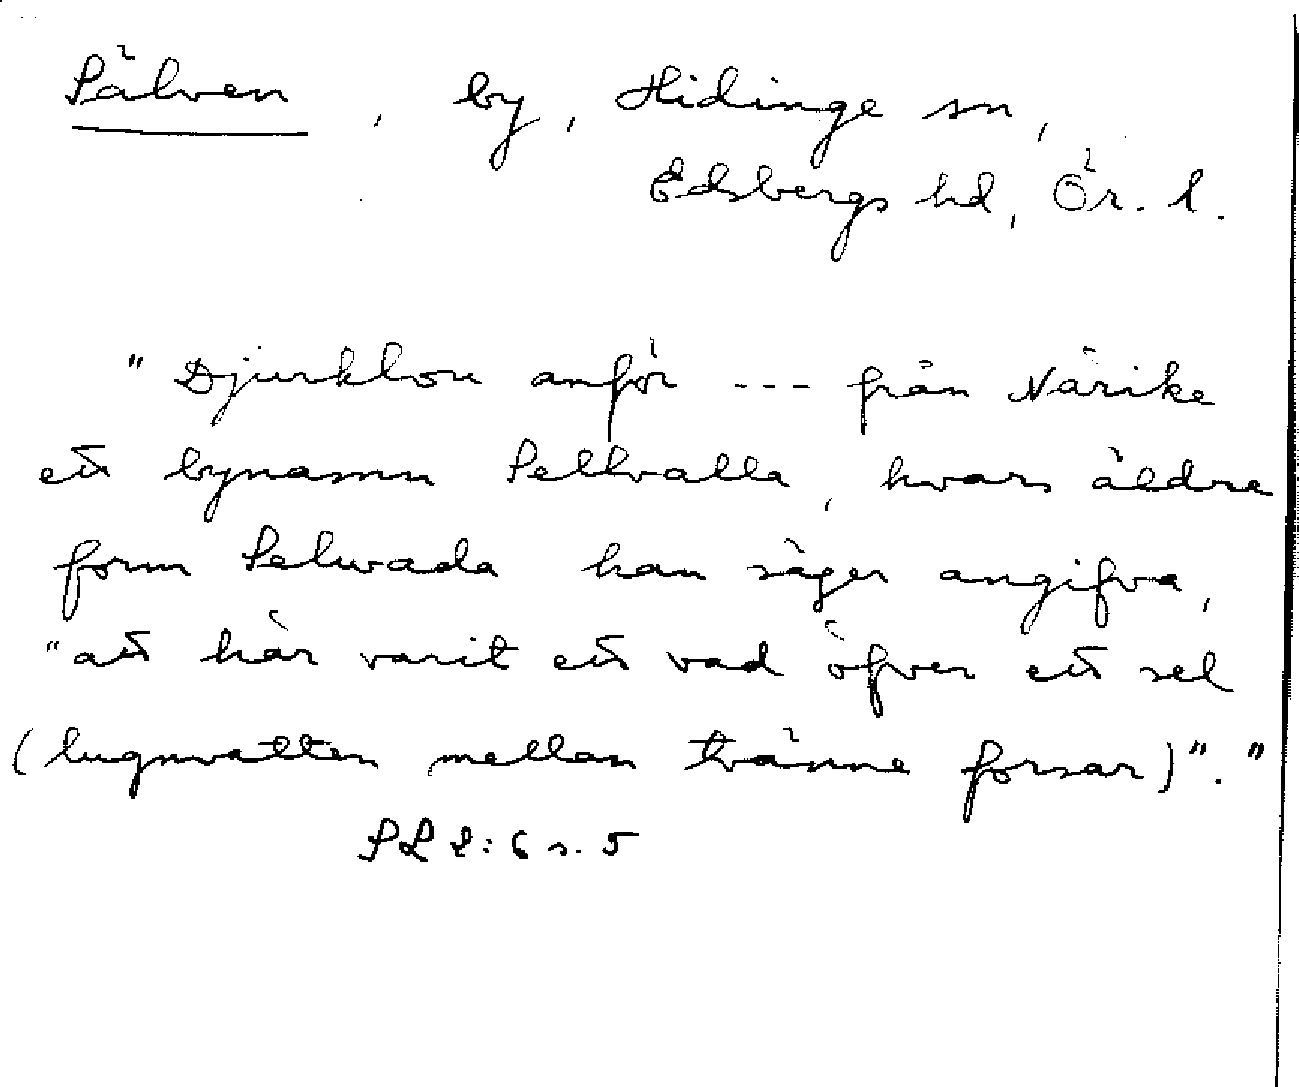 Sälven, by, Hidinge sn,
Edsbergs hd, Ör. l.
"Djurklou anför --- från Närike
ett bynamn Sellvalla, hvars äldre
form Selwada han säger angifva,
"att här varit ett vad öfver ett sel
(lugnvatten mellan tvänne forsar)"."
SL 2:6 s. 5